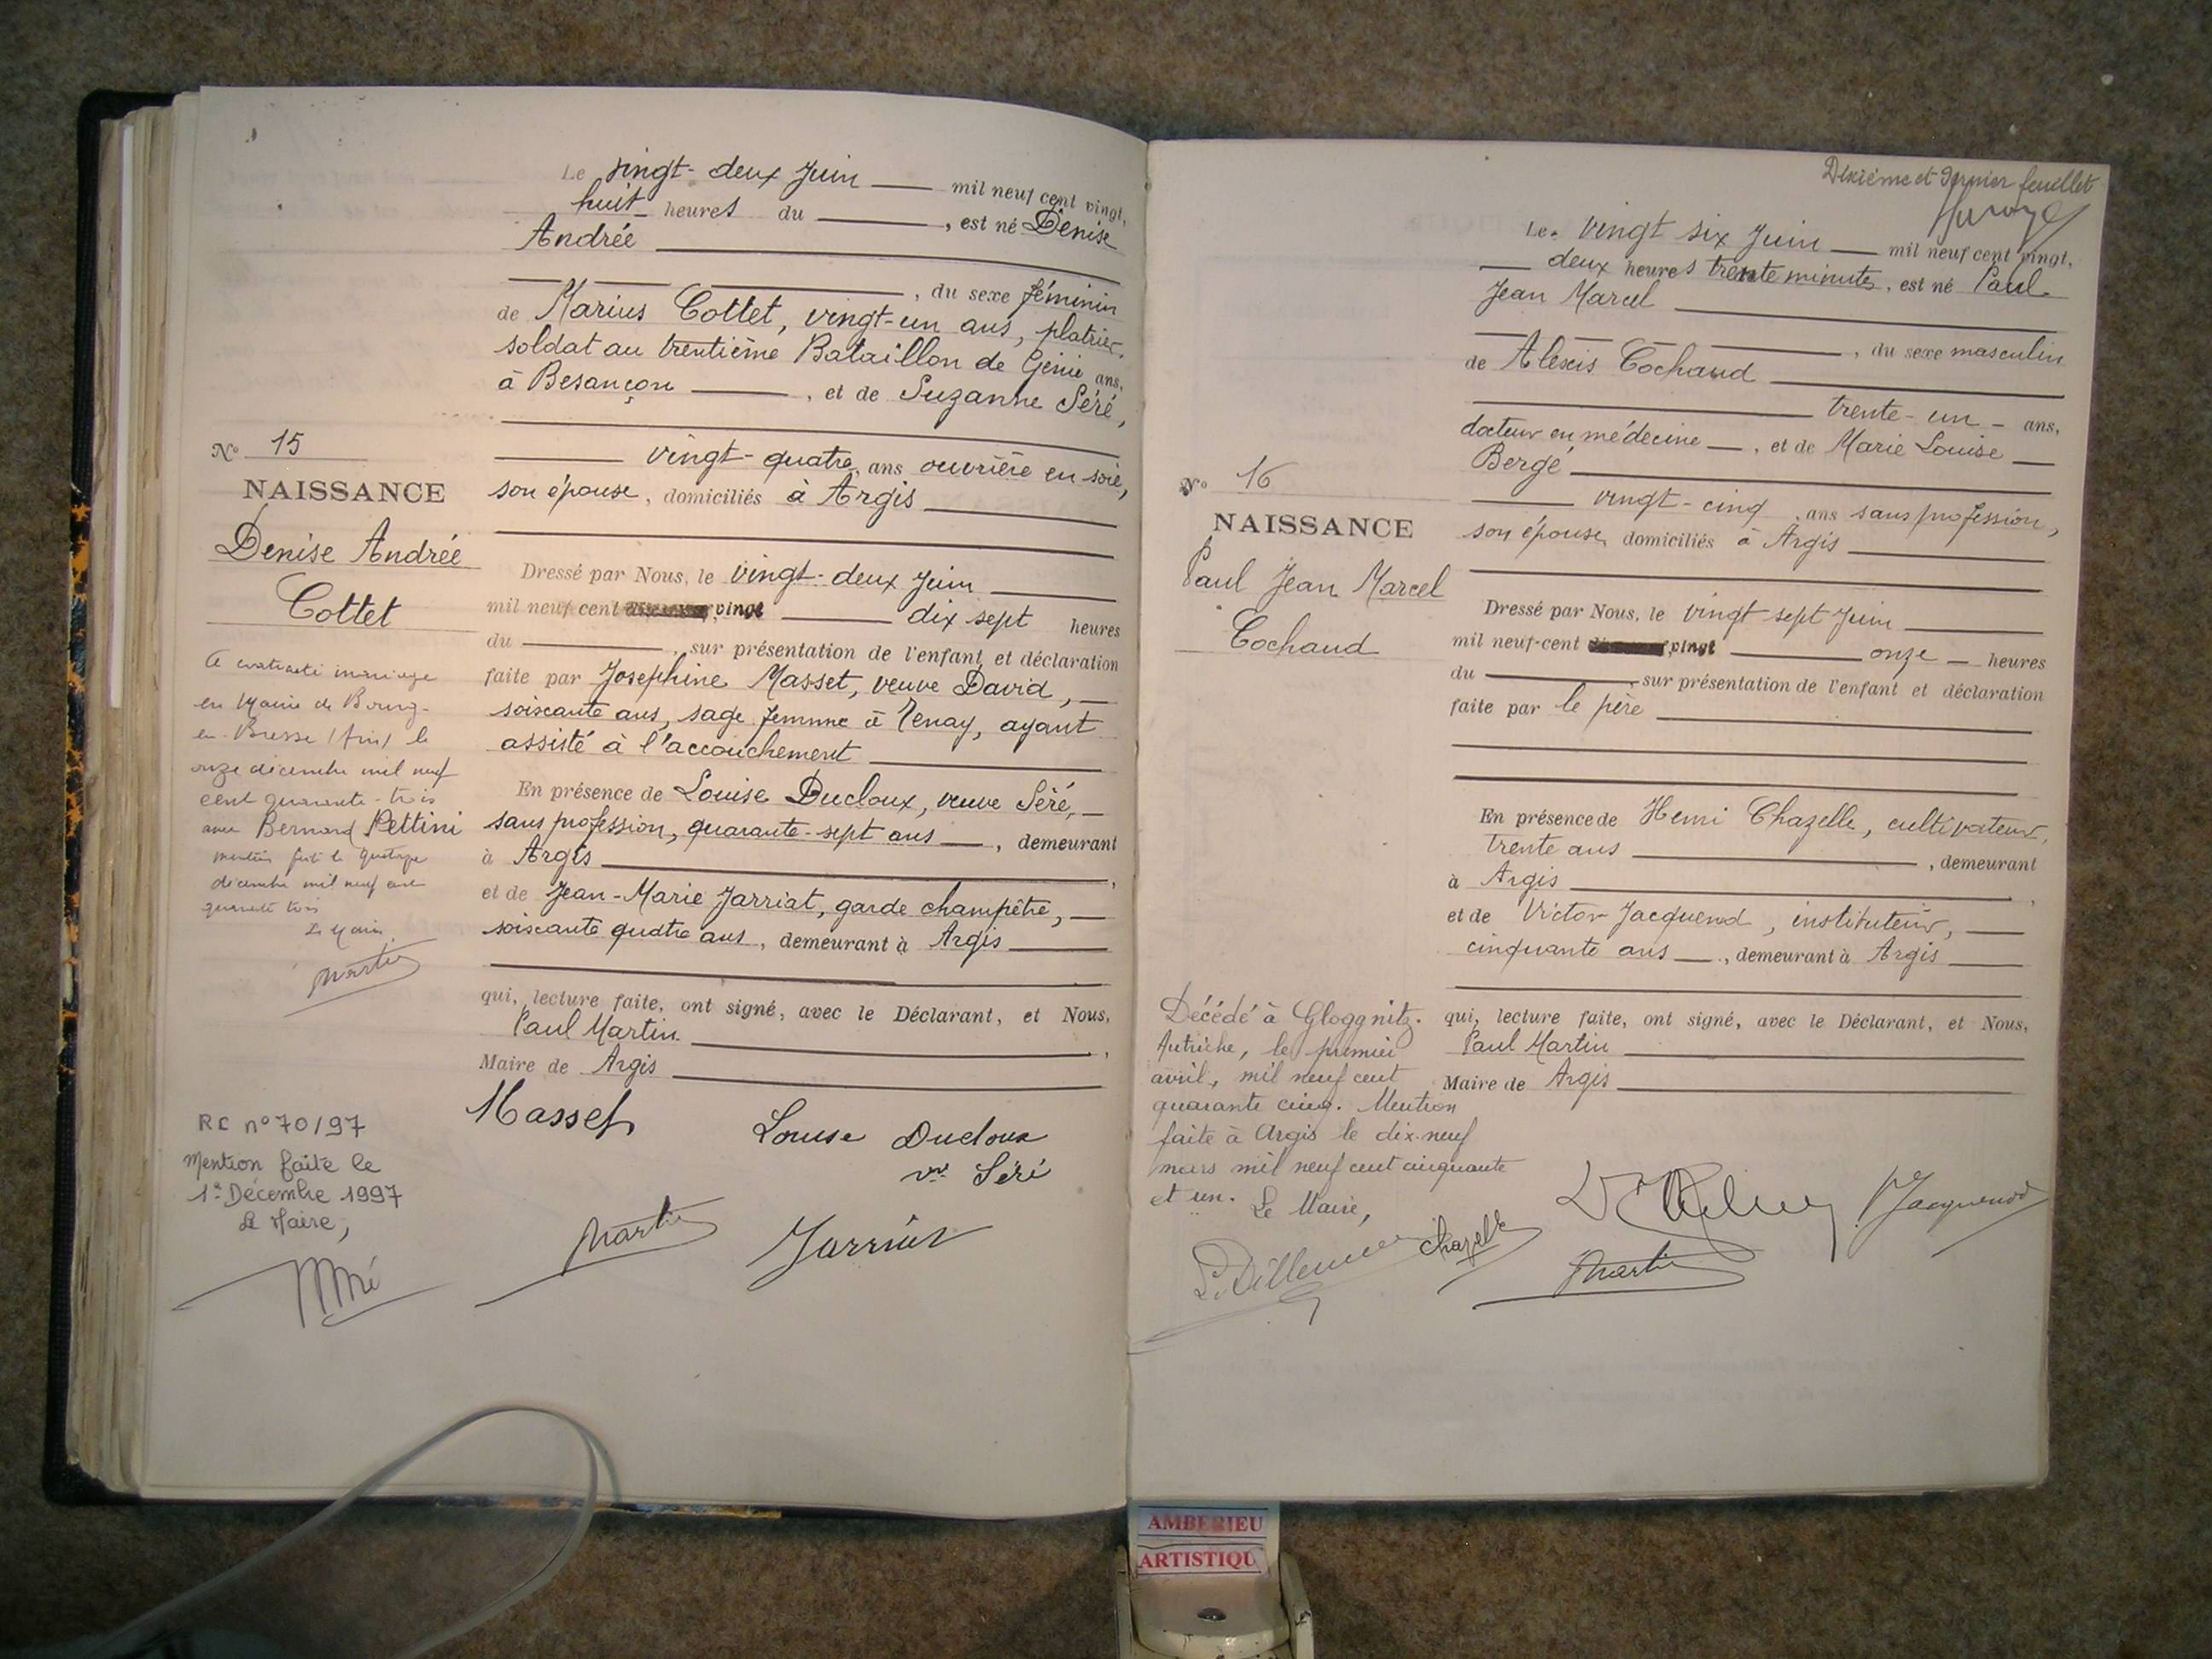 Le vingt-deux Juin mil neuf cent vingt,
huit heures du , est né Denise
Andrée
, du sexe féminin
de Marius Cottet, vingt-un ans, platrier,
soldat au trentième Bataillon de Génie ans,
à Besançon , et de Suzanne Séré,
vingt-quatre ans ouvrière en soie,
son épouse, domiciliés à Argis
N° 15
NAISSANCE
Denise Andrée
Cottet
Dressé par Nous, le vingt-deux Juin
mil neuf cent vingt dix sept heures
du , sur présentation de l'enfant et déclaration
faite par Josephine Masset, veuve David,
soixante ans, sage femme à Tenay, ayant
assisté à l'accouchement
En présence de Louise Ducloux, veuve Séré,
sans profession, quarante-sept ans , demeurant
à Argis ,
et de Jean-Marie Jarriat, garde champêtre,
soixante quatre ans, demeurant à Argis
qui, lecture faite, ont signé, avec le Déclarant, et Nous,
Paul Martin ,
Maire de Argis
A contracté mariage
en Mairie de Bourg-
en-Bresse (Ain) le
onze décembre mil neuf
cent quarante-trois
avec Bernard Pettini
mention faite le quatorze
décembre mil neuf cent
quarante trois
Le Maire,
Martin
RC n° 70/97
Mention faite le
1er Décembre 1997
Le Maire,
Masset
Louise Ducloux
vve Séré
Martin
Jarriat
Dixième et dernier feuillet
Le vingt six Juin mil neuf cent vingt,
deux heures trente minutes, est né Paul
Jean Marcel
, du sexe masculin
de Alexis Cochaud
trente-un ans,
docteur en médecine , et de Marie Louise
Bergé
vingt-cinq , ans sans profession,
son épouse, domiciliés à Argis
N° 16
NAISSANCE
Paul Jean Marcel
Cochaud
Dressé par Nous, le vingt sept Juin
mil neuf-cent vingt onze heures
du , sur présentation de l'enfant et déclaration
faite par le père
En présence de Henri Chazelle, cultivateur,
trente ans , demeurant
à Argis ,
et de Victor Jacquenod, instituteur,
cinquante ans , demeurant à Argis
qui, lecture faite, ont signé, avec le Déclarant, et Nous,
Paul Martin
Maire de Argis
Décédé à Gloggnitz.
Autriche, le premier
avril, mil neuf cent
quarante cinq. Mention
faite à Argis le dix-neuf
mars mil neuf cent cinquante
et un. Le Maire,
Chazelle
Jacquenod
Martin
AMBERIEU
ARTISTIQU